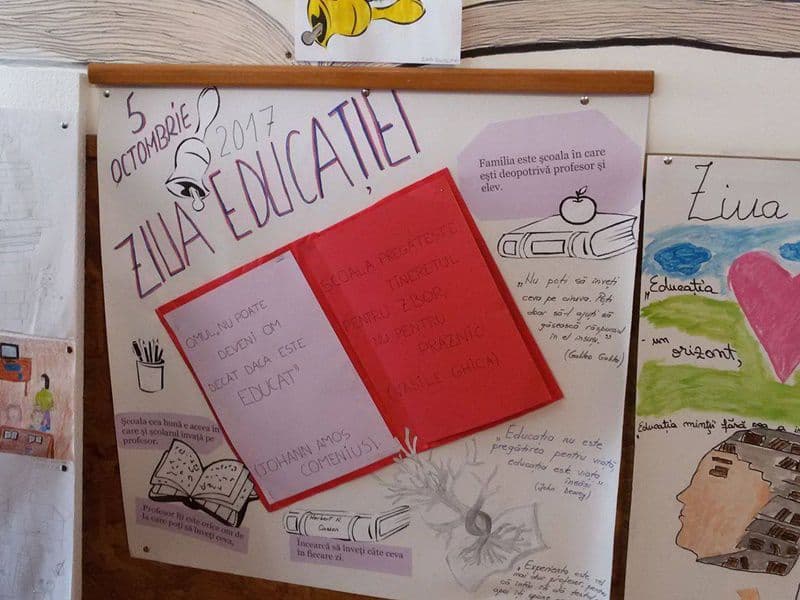 5
OCTOMBRIE
2017
ZIUA EDUCAȚIEI
Familia este școala în care
ești deopotrivă profesor și
elev.
OMUL „NU POATE
DEVENI OM
DECAT DACA ESTE
EDUCAT"
(JOHANN AMOS
COMENIUS)
ȘCOALA PREGĂTEȘTE
TINERETUL
PENTRU ZBOR,
NU PENTRU
PRAZNIC
(VASILE GHICA)
„Nu poți să înveți
ceva pe cineva. Poți
doar să-l ajuți să
găsească răspunsul
în el însuși."
(Galileo Galilei)
Școala cea bună e aceea în
care și școlarul învață pe
profesor.
Profesor îți este orice om de
la care poți să înveți ceva.
Herbert N.
Casson
Încearcă să înveți câte ceva
în fiecare zi.
„Educația nu este
pregătirea pentru viață,
educația este viața
însăși."
(John Dewey)
„Experiența este cel
mai dur profesor, pentru
că întâi îți dă testul,
apoi îți spune
Ziua
„Educația
- un
orizont,
Educația minții fără